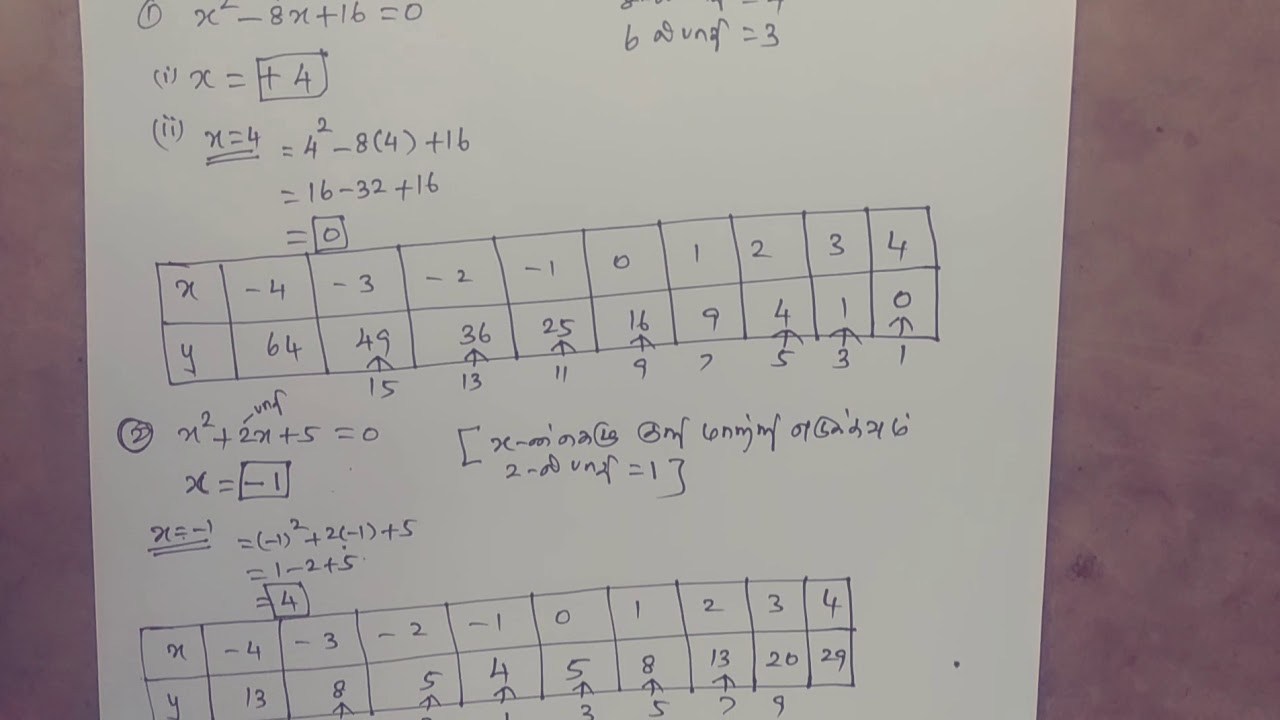 ① x² - 8x + 16 = 0
= 4
6 ல் பாதி = 3
(i) x = + 4
(ii) x = 4 = 4² - 8(4) + 16
= 16 - 32 + 16
= 0
x -4 -3 -2 -1 0 1 2 3 4
y 64 49 36 25 16 9 4 1 0
15 13 11 9 7 5 3 1
பாதி
② x² + 2x + 5 = 0
[ x-ன் குறி மாற்றி
x = -1
2-ல் பாதி = 1 ]
x = -1 = (-1)² + 2(-1) + 5
= 1 - 2 + 5
= 4
x -4 -3 -2 -1 0 1 2 3 4
y 13 8 5 4 5 8 13 20 29
3 5 7 9